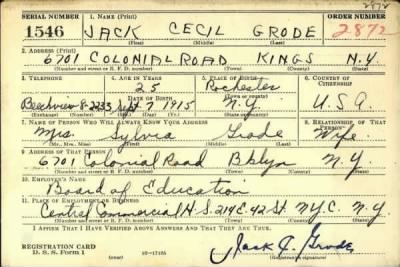 2872
SERIAL NUMBER 1. NAME (Print) ORDER NUMBER
1546 JACK CECIL GRODE 2872
(First) (Middle) (Last)
2. ADDRESS (Print)
6701 COLONIAL ROAD KINGS N.Y.
(Number and street or R. F. D. number) (Town) (County) (State)
3. TELEPHONE 4. AGE IN YEARS 5. PLACE OF BIRTH 6. COUNTRY OF CITIZENSHIP
25 Rochester
Beechview 8-2233 Sept. 7 1915 N.Y. U.S.A.
7. NAME OF PERSON WHO WILL ALWAYS KNOW YOUR ADDRESS 8. RELATIONSHIP OF THAT PERSON
Mrs. Sylvia Grode Wife
(Mr., Mrs., Miss) (First) (Middle) (Last)
9. ADDRESS OF THAT PERSON
6701 Colonial Road Bklyn N.Y.
(Number and street or R. F. D. number) (Town) (County) (State)
10. EMPLOYER'S NAME
Board of Education
11. PLACE OF EMPLOYMENT OR BUSINESS
Central Commercial H.S. 214 E. 42 St. N.Y.C. N.Y.
(Number and street or R. F. D. number) (Town) (County) (State)
I AFFIRM THAT I HAVE VERIFIED ABOVE ANSWERS AND THAT THEY ARE TRUE.
REGISTRATION CARD
D. S. S. Form 1
Jack C. Grode